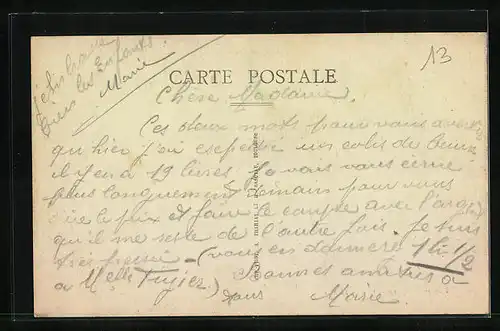 bien les Enfants
Marie
13
CARTE POSTALE
Chère Madame,
Ces deux mots pour vous avertir
qu'hier j'ai expédié vos colis de beurre
il y en a 19 livres. Je vais vous écrire
plus longuement demain pour vous
dire le prix et faire le compte avec l'argent
qu'il me reste de l'autre fois. Je suis
très pressée (vous en donnerez 1 li 1/2
à Melle) Bonnes amitiés à
tous Marie